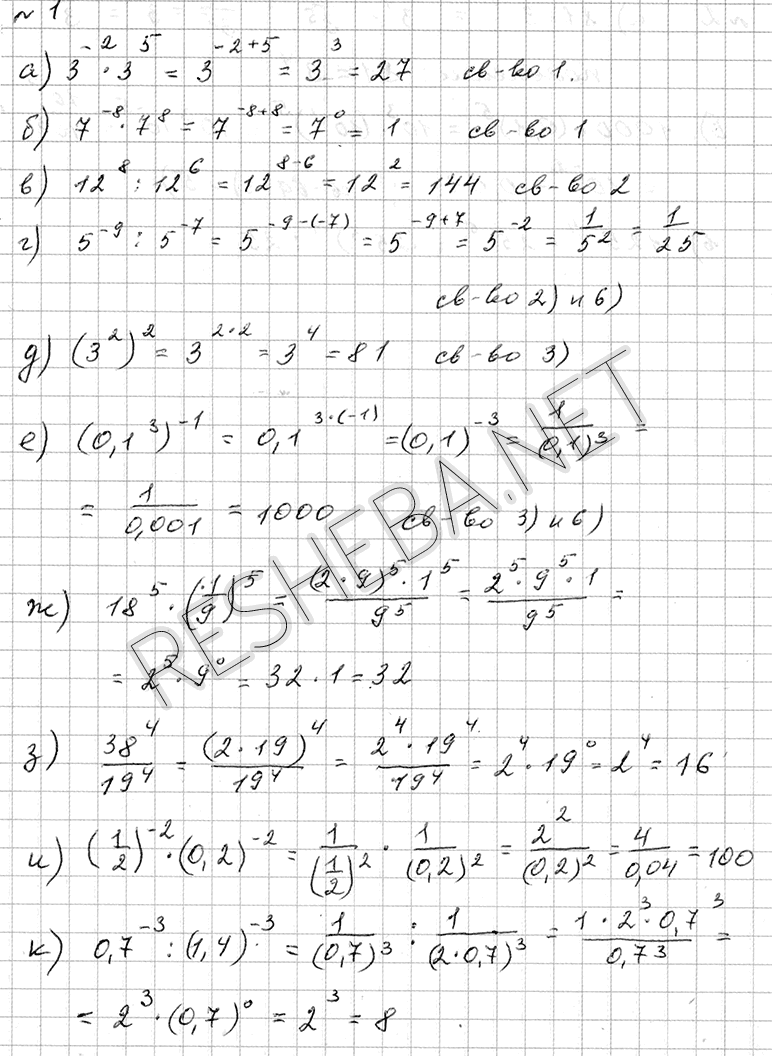 № 1
а) 3⁻² · 3⁵ = 3⁻²⁺⁵ = 3³ = 27 св-во 1.
б) 7⁻⁸ · 7⁸ = 7⁻⁸⁺⁸ = 7⁰ = 1 св-во 1
в) 12⁸ : 12⁶ = 12⁸⁻⁶ = 12² = 144 св-во 2
г) 5⁻⁹ : 5⁻⁷ = 5^(-9-(-7)) = 5⁻⁹⁺⁷ = 5⁻² = 1/5² = 1/25
св-во 2) и 6)
д) (3²)² = 3^(2·2) = 3⁴ = 81 св-во 3)
е) (0,1³)⁻¹ = 0,1^(3·(-1)) = (0,1)⁻³ = 1/(0,1)³ =
= 1/0,001 = 1000 св-во 3) и 6)
ж) 18⁵ · (1/9)⁵ = (2·9)⁵·1⁵/9⁵ = 2⁵·9⁵·1/9⁵ =
= 2⁵ · 9⁰ = 32 · 1 = 32
з) 38⁴/19⁴ = (2·19)⁴/19⁴ = 2⁴·19⁴/19⁴ = 2⁴·19⁰ = 2⁴ = 16
и) (1/2)⁻² · (0,2)⁻² = 1/(1/2)² · 1/(0,2)² = 2²/(0,2)² = 4/0,04 = 100
к) 0,7⁻³ : (1,4)⁻³ = 1/(0,7)³ : 1/(2·0,7)³ = 1·2³·0,7³/0,7³ =
= 2³·(0,7)⁰ = 2³ = 8
RESHEBA.NET